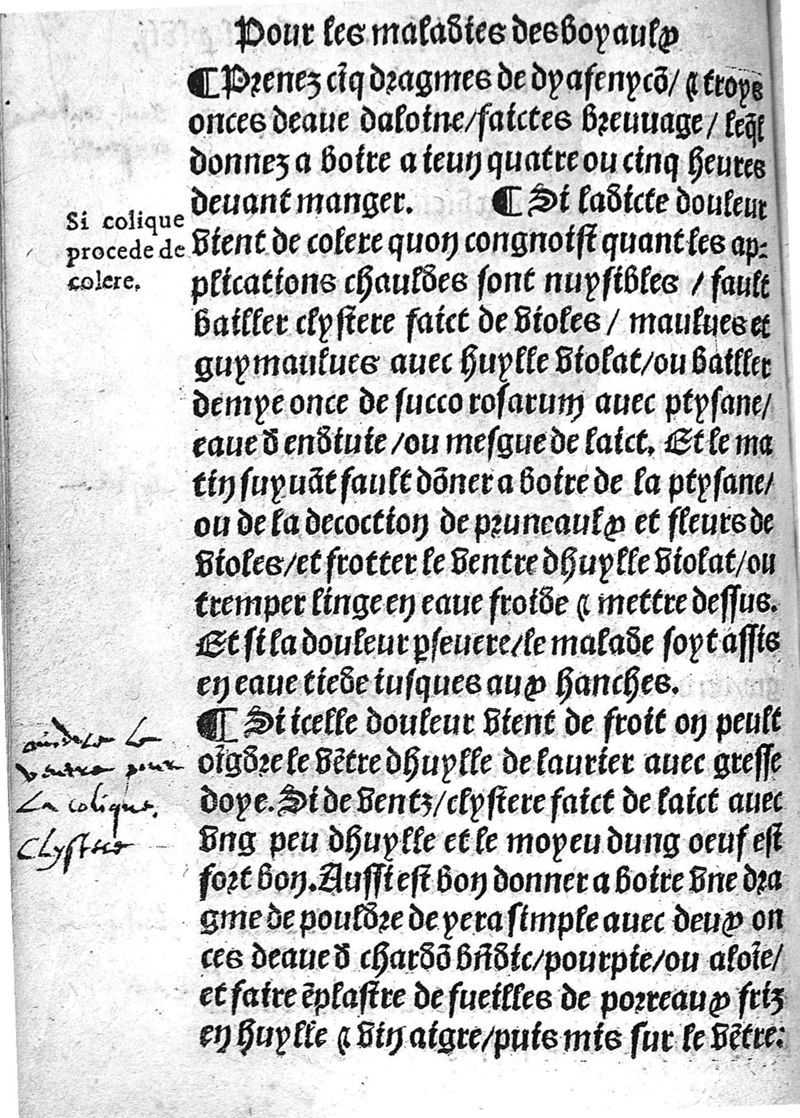 Pour les maladies des boyaulx
¶ Prenez cĩq dragmes de dyafenycõ/ ⁊ troys
onces deaue daloine/faictes breuuage/ leq̃l
donnez a boire a ieun quatre ou cinq heures
deuant manger. ¶ Si ladicte douleur
Si colique
procede de
colere.
vient de colere quon congnoist quant les ap⸗
plications chauldes sont nuysibles / fault
bailler clystere faict de violes / maulues et
guymaulues auec huylle violat/ou bailler
demye once de succo rosarum auec ptysane/
eaue d̃ endiuie /ou mesgue de laict. Et le ma
tin suyuãt fault dõner a boire de la ptysane/
ou de la decoction de pruneaulx et fleurs de
violes/et frotter le ventre dhuylle violat/ou
tremper linge en eaue froide ⁊ mettre dessus.
Et si la douleur ꝑseuere/le malade soyt assis
en eaue tiede iusques aux hanches.
¶ Si icelle douleur vient de froit on peult
oĩgdre le vẽtre dhuylle de laurier auec gresse
doye. Si de ventz/clystere faict de laict auec
vng peu dhuylle et le moyeu dung oeuf est
fort bon. Aussi est bon donner a boire vne dra
gme de pouldre de yera simple auec deux on
ces deaue d̃ chardõ bñdic/pourpie/ou aloĩe/
et faire ẽplastre de fueilles de porreaux friz
en huylle ⁊ vin aigre/puis mis sur le vẽtre:
le
ventre pour
La colique.
Clystere